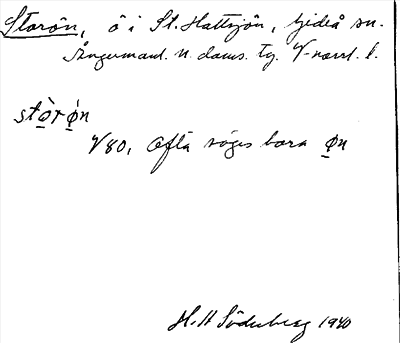 Storön, ö i St. Hallsjön, Gideå sn.
Ångermanl. n. doms. tg. V-norrl. l.
stò̱rǿ̱n
V80, Ofta säges bara ø̱n
H. H Söderberg 1940